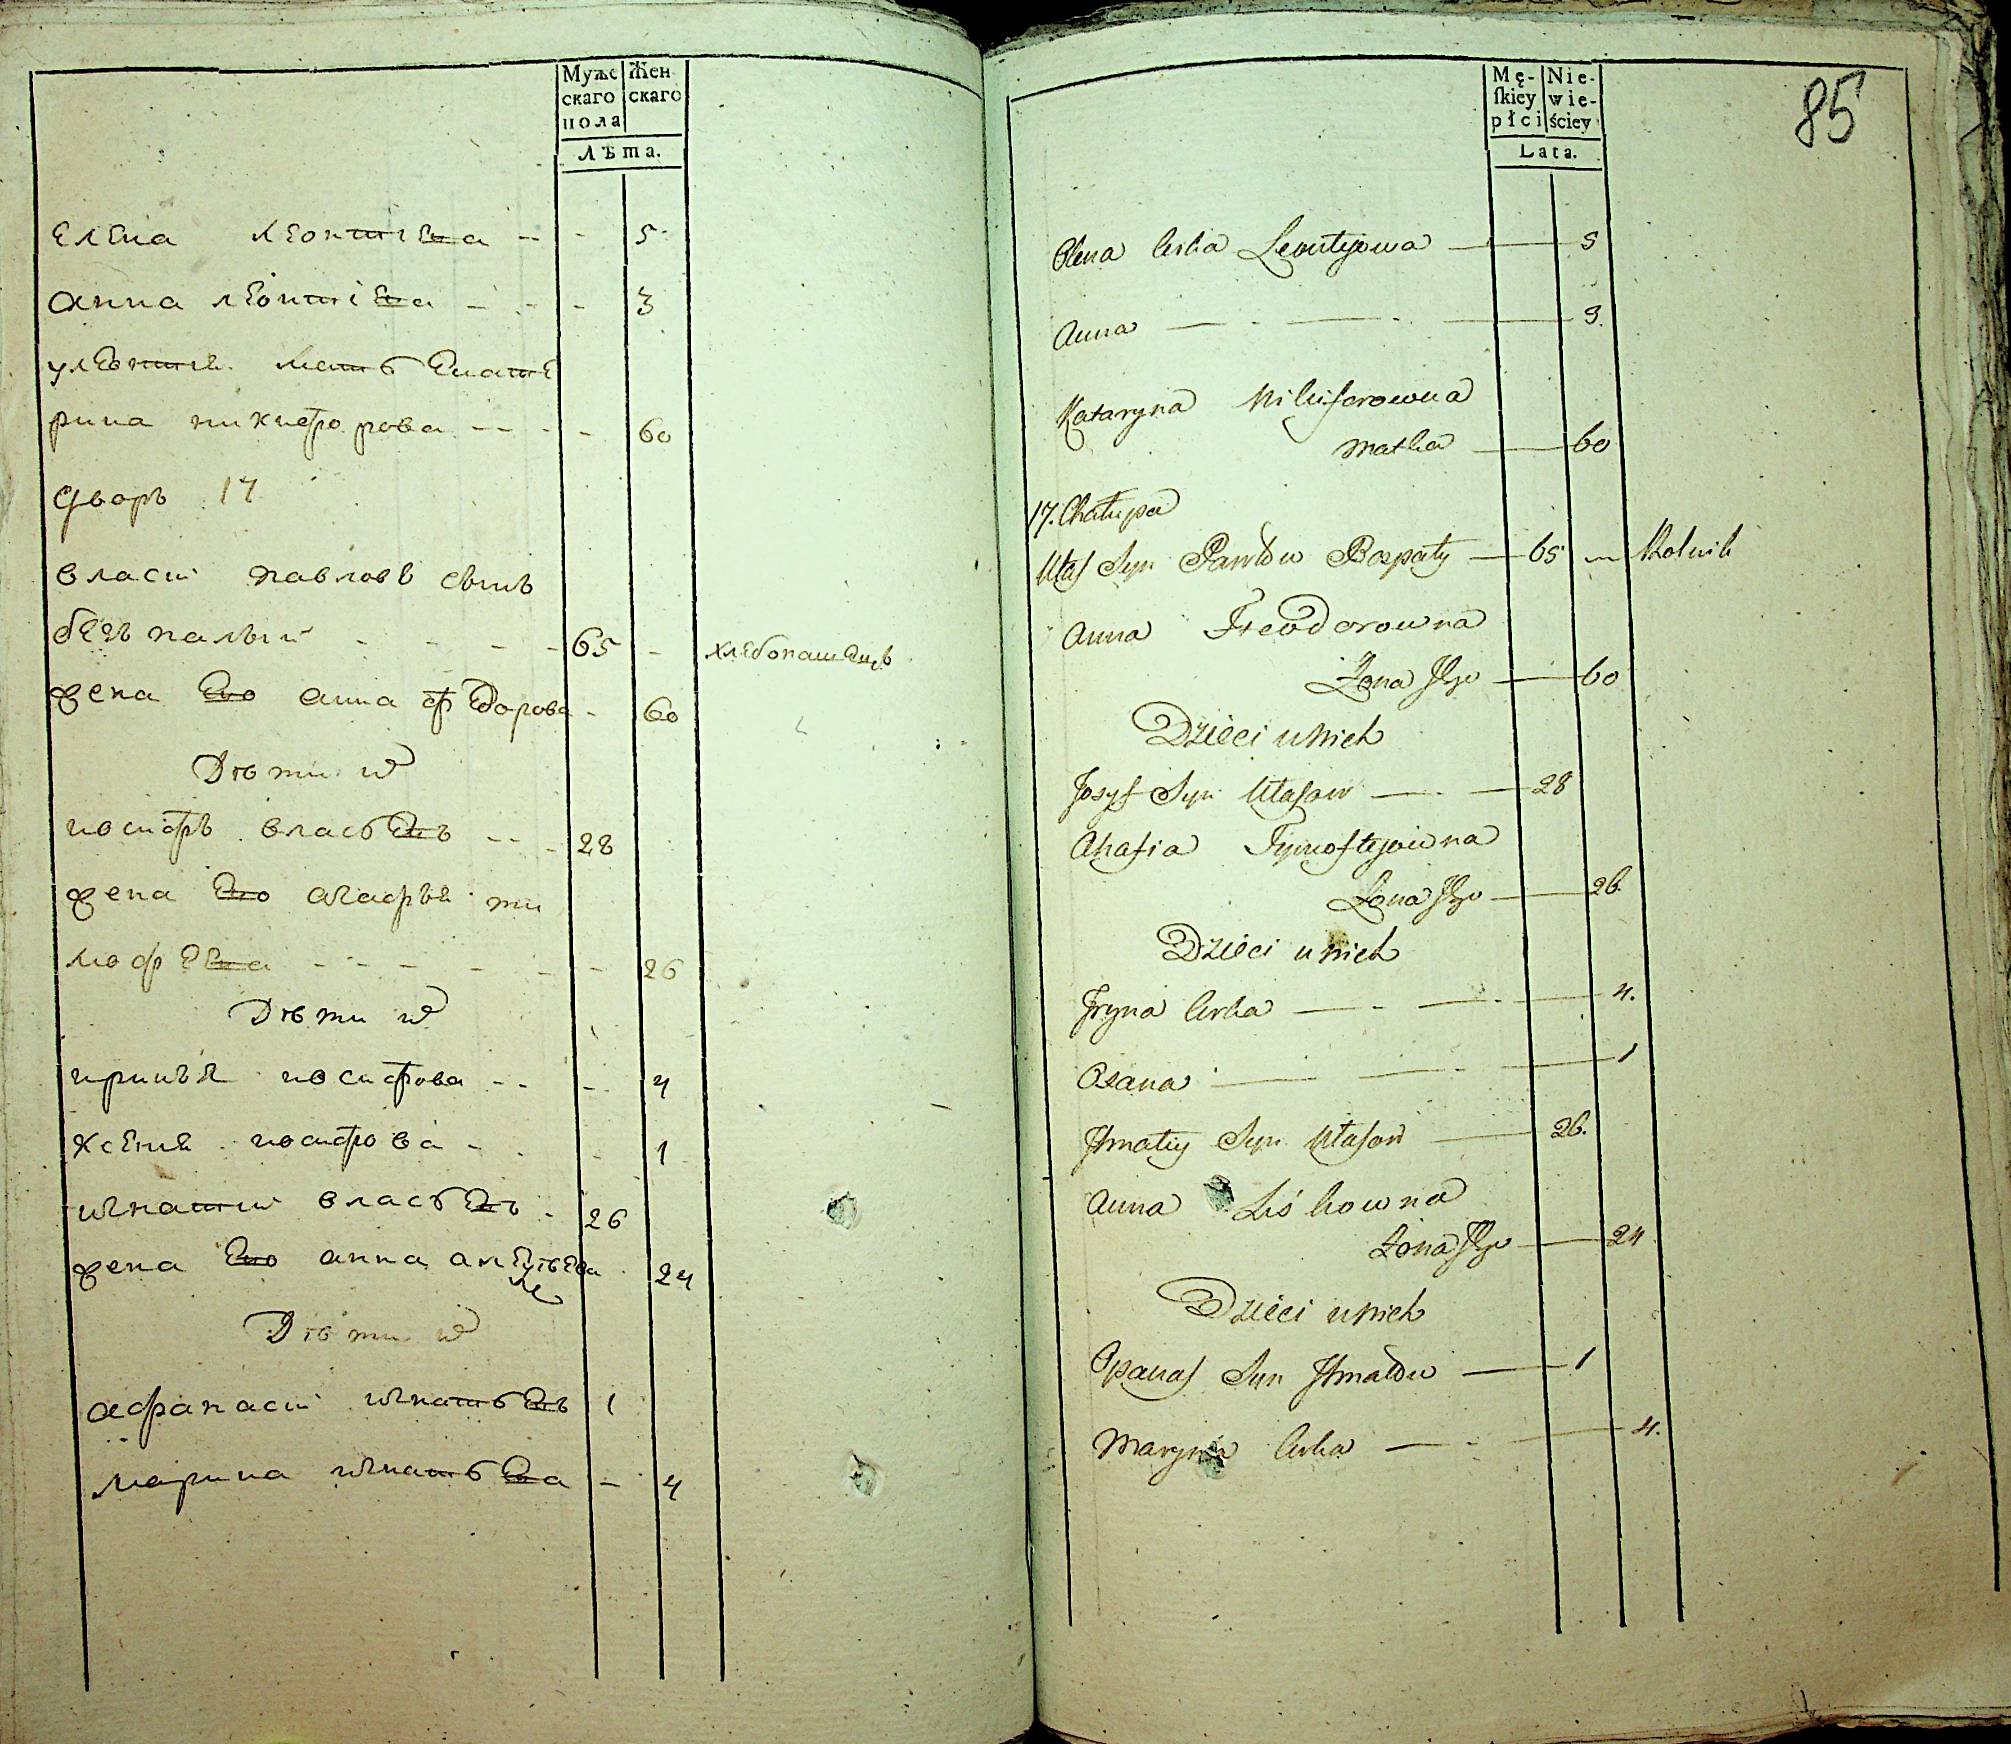 Муже
скаго
пола
Жен
скаго
Лѣта.
Елена леонтиева - - 5
анна леонтиева - - - 3
улевтия мать Екате
рина никифорова - - - - 60
Дворъ 17
власій павловъ сынъ
безпалый - - - - 65 - хлебопашецъ
жена Его анна федорова - 60
Дѣти их
иосифъ власьевъ - - - 28
жена Его агафья ти
мофеева - - - - - - 26
Дѣти их
иринья иосифова - - - 4
ксения иосифова - - - 1
игнатий власьевъ - 26
жена Его анна алексѣева 24
Дѣти их
афанасий игнатьевъ 1
марина игнатьева - 4
Mę-
ſkiey
płci
Nie-
wie-
ściey
Lata.
85
Olena Curka Leontejowa — 5
Anna — - — - — 3.
Kataryna Nikiforowna
Matka — 60
17. Chałupa
Ułas Syn Pawłów Bezpały — 65 — Rolnik
Anna Fteodorowna
Zona Jego — 60
Dzieci u Nich
Josyf Syn Ułasow — - — 28
Ahafia Tymoftejowna
Zona Jego — 26.
Dzieci u Nich
Jryna Curka — - — - — 4.
Oxana — — - — 1
Jhnatiy Syn Ułasow — 26.
Anna Liśkowna
Zona Jego — 24
Dzieci u Nich
Opanas Syn Jhnatów — 1
Maryna Curka — - — 4.